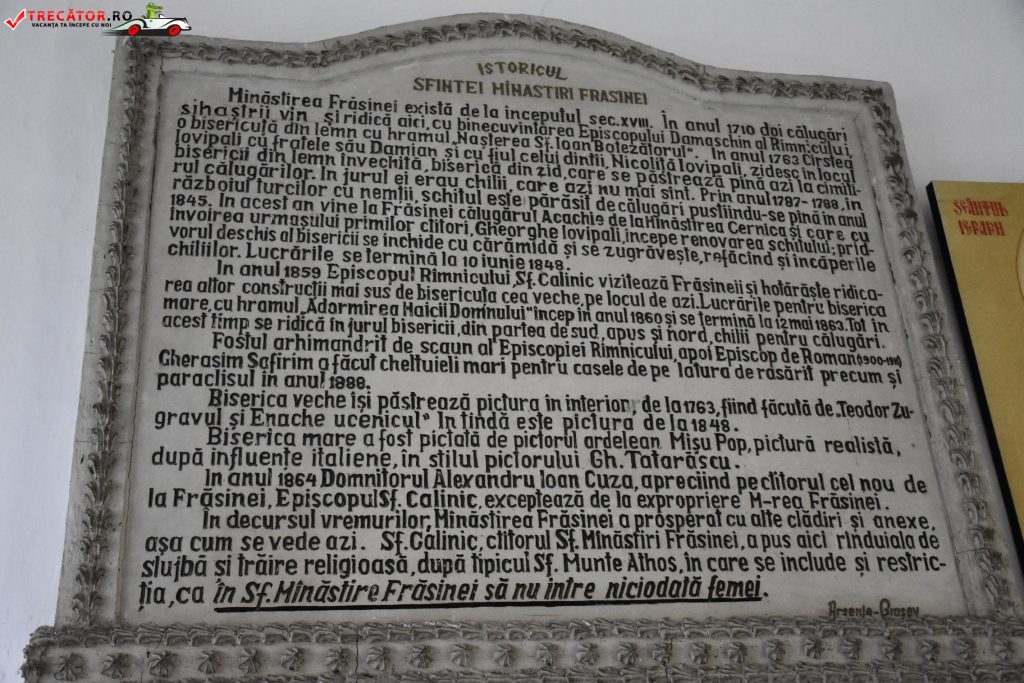 TRECĂTOR.RO
VACANȚA TA ÎNCEPE CU NOI
ISTORICUL
SFINTEI MÎNASTIRI FRASINEI
Minăstirea Frăsinei există de la inceputul sec.XVIII. În anul 1710 doi călugări
sihaștrii vin și ridică aici, cu binecuvintărea Episcopului Damaschin al Rimnicului,
o bisericuță din lemn cu hramul „Nașterea Sf. Ioan Botezătorul". În anul 1763 Cîrstea
Iovipali cu fratele său Damian și cu fiul celui dintîi, Nicoliță Iovipali, zidesc în locul
bisericii din lemn învechită, biserică din zid, care se păstrează pină azi la cimiti-
rul călugărilor. În jurul ei erau chilii, care azi nu mai sînt. Prin anul 1787-1788, in
războiul turcilor cu nemții, schitul este părăsit de călugări pustiindu-se pină in anul
1845. In acest an vine la Frăsinei călugărul Acachie de la Minăstirea Cernica și care cu
învoirea urmașului primilor ctitori, Gheorghe Iovipali, începe renovarea schitului; prid-
vorul deschis al bisericii se inchide cu cărămidă și se zugrăvește, refăcind și incăperile
chiliilor. Lucrările se termină la 10 iunie 1848.
In anul 1859 Episcopul Rimnicului, Sf. Calinic vizitează Frăsineii și hotărăște ridica-
rea altor construcții mai sus de bisericuța cea veche, pe locul de azi. Lucrările pentru biserica
mare, cu hramul „Adormirea Maicii Domnului" incep in anul 1860 și se termină la 12 mai 1863. Tot in
acest timp se ridică în jurul bisericii, din partea de sud, apus și nord, chilii pentru călugări.
Fostul arhimandrit de scaun al Episcopiei Rimnicului, apoi Episcop de Roman (1900-1911)
Gherasim Safirim a făcut cheltuieli mari pentru casele de pe latura de răsărit precum și
paraclisul în anul 1888.
Biserica veche își păstrează pictura în interior, de la 1763, fiind făcută de „Teodor Zu-
gravul și Enache ucenicul" In tindă este pictura de la 1848.
Biserica mare a fost pictată de pictorul ardelean Mișu Pop, pictură realistă,
după influențe italiene, in stilul pictorului Gh. Tatarăscu.
În anul 1864 Domnitorul Alexandru Ioan Cuza, apreciind pe ctitorul cel nou de
la Frăsinei, Episcopul Sf. Calinic, exceptează de la expropriere M-rea Frăsinei.
În decursul vremurilor, Minăstirea Frăsinei a prosperat cu alte clădiri și anexe,
așa cum se vede azi. Sf. Calinic, ctitorul Sf. Mînăstiri Frăsinei, a pus aici rînduiala de
slujbă si trăire religioasă, după tipicul Sf. Munte Athos, în care se include și restric-
ția, ca în Sf. Mînăstire Frăsinei să nu intre niciodată femei.
Arsenie-Brasov
SFÂNTUL